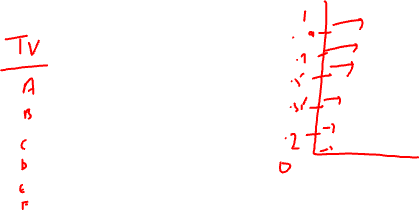 TV
A
B
C
D
E
F
1
.9
.7
.5
.35
.2
0